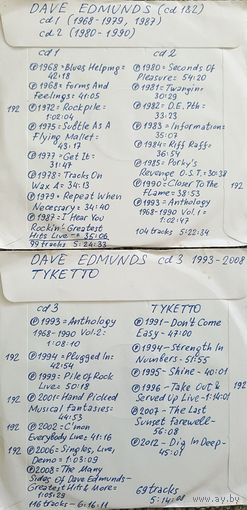 DAVE EDMUNDS (cd 1&2)
cd 1 (1968-1979, 1987)
cd 2 (1980-1990)
cd 1
℗ 1968=Blues Helping=
42:18
℗ 1968=Forms And
Feelings= 41:05
192 ℗ 1972=Rockpile=
1:02:04
℗ 1975=Subtle As A
Flying Mallet=
43:17
℗ 1977=Get It=
31:47
℗ 1978=Tracks On
Wax 4= 34:13
℗ 1979=Repeat When
Necessary= 34:40
℗ 1987=I Hear You
Rockin'-Greatest
Hits Live= 35:06
99 tracks 5:24:33
cd 2
℗ 1980=Seconds Of
Pleasure= 54:20
℗ 1981=Twangin=
30:29
℗ 1982=D.E. 7th=
33:23
℗ 1983=Information=
35:07
℗ 1984=Riff Raff=
36:54
℗ 1985=Porky's
Revenge O.S.T.=30:38
℗ 1990=Closer To The
Flame=38:53 192
℗ 1993=Anthology
1968-1990 Vol. 1=
1:02:47
104 tracks 5:22:34
DAVE EDMUNDS cd 3 1993-2008
TYKETTO
cd 3
℗ 1993=Anthology
1968-1990 Vol. 2=
1:08:10
192 ℗ 1994=Plugged In=
42:54
℗ 1999=Pile Of Rock
Live= 50:18
192 ℗ 2001=Hand Picked
Musical Fantasies=
44:53
192 ℗ 2002=C'mon
Everybody Live= 41:16
192 ℗ 2006=Singles, Live,
Demo= 1:03:09
℗ 2008=The Many
Sides Of Dave Edmunds-
Greatest Hits & More=
1:05:29
116 tracks - 6:16:11
TYKETTO
℗ 1991-Don't Come
Easy-47:40
℗ 1994-Strength In
Numbers-51:55
℗ 1995-Shine-40:01
℗ 1996-Take Out & 192
Served Up Live-1:14:01
℗ 2007-The Last
Sunset Farewell-
56:08
℗ 2012-Dig In Deep-
45:01
69 tracks
www.ay.by